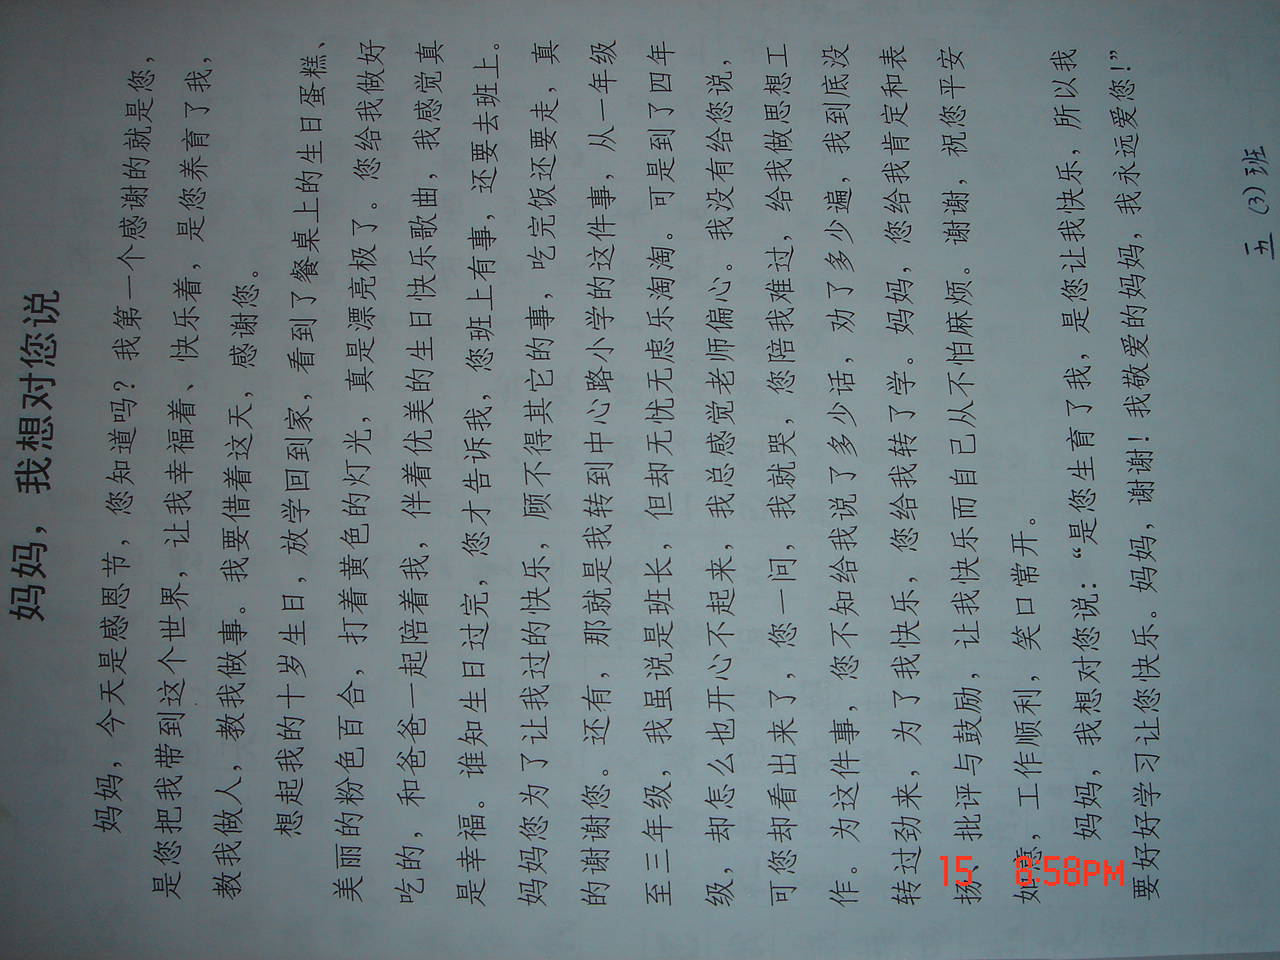 妈妈，我想对您说
妈妈，今天是感恩节，您知道吗？我第一个感谢的就是您，
是您把我带到这个世界，让我幸福着、快乐着，是您养育了我，
教我做人，教我做事。我要借着这天，感谢您。
想起我的十岁生日，放学回到家，看到了餐桌上的生日蛋糕、
美丽的粉色百合，打着黄色的灯光，真是漂亮极了。您给我做好
吃的，和爸爸一起陪着我，伴着优美的生日快乐歌曲，我感觉真
是幸福。谁知生日过完，您才告诉我，您班上有事，还要去班上。
妈妈您为了让我过的快乐，顾不得其它的事，吃完饭还要走，真
的谢谢您。还有，那就是我转到中心路小学的这件事，从一年级
至三年级，我虽说是班长，但却无忧无虑乐淘淘。可是到了四年
级，却怎么也开心不起来，我总感觉老师偏心。我没有给您说，
可您却看出来了，您一问，我就哭，您陪我难过，给我做思想工
作。为这件事，您不知给我说了多少话，劝了多少遍，我到底没
转过劲来，为了我快乐，您给我转了学。妈妈，您给我肯定和表
扬、批评与鼓励，让我快乐而自己从不怕麻烦。谢谢，祝您平安
如意，工作顺利，笑口常开。
妈妈，我想对您说：“是您生育了我，是您让我快乐，所以我
要好好学习让您快乐。妈妈，谢谢！我敬爱的妈妈，我永远爱您！”
五（3）班
15 8:58PM